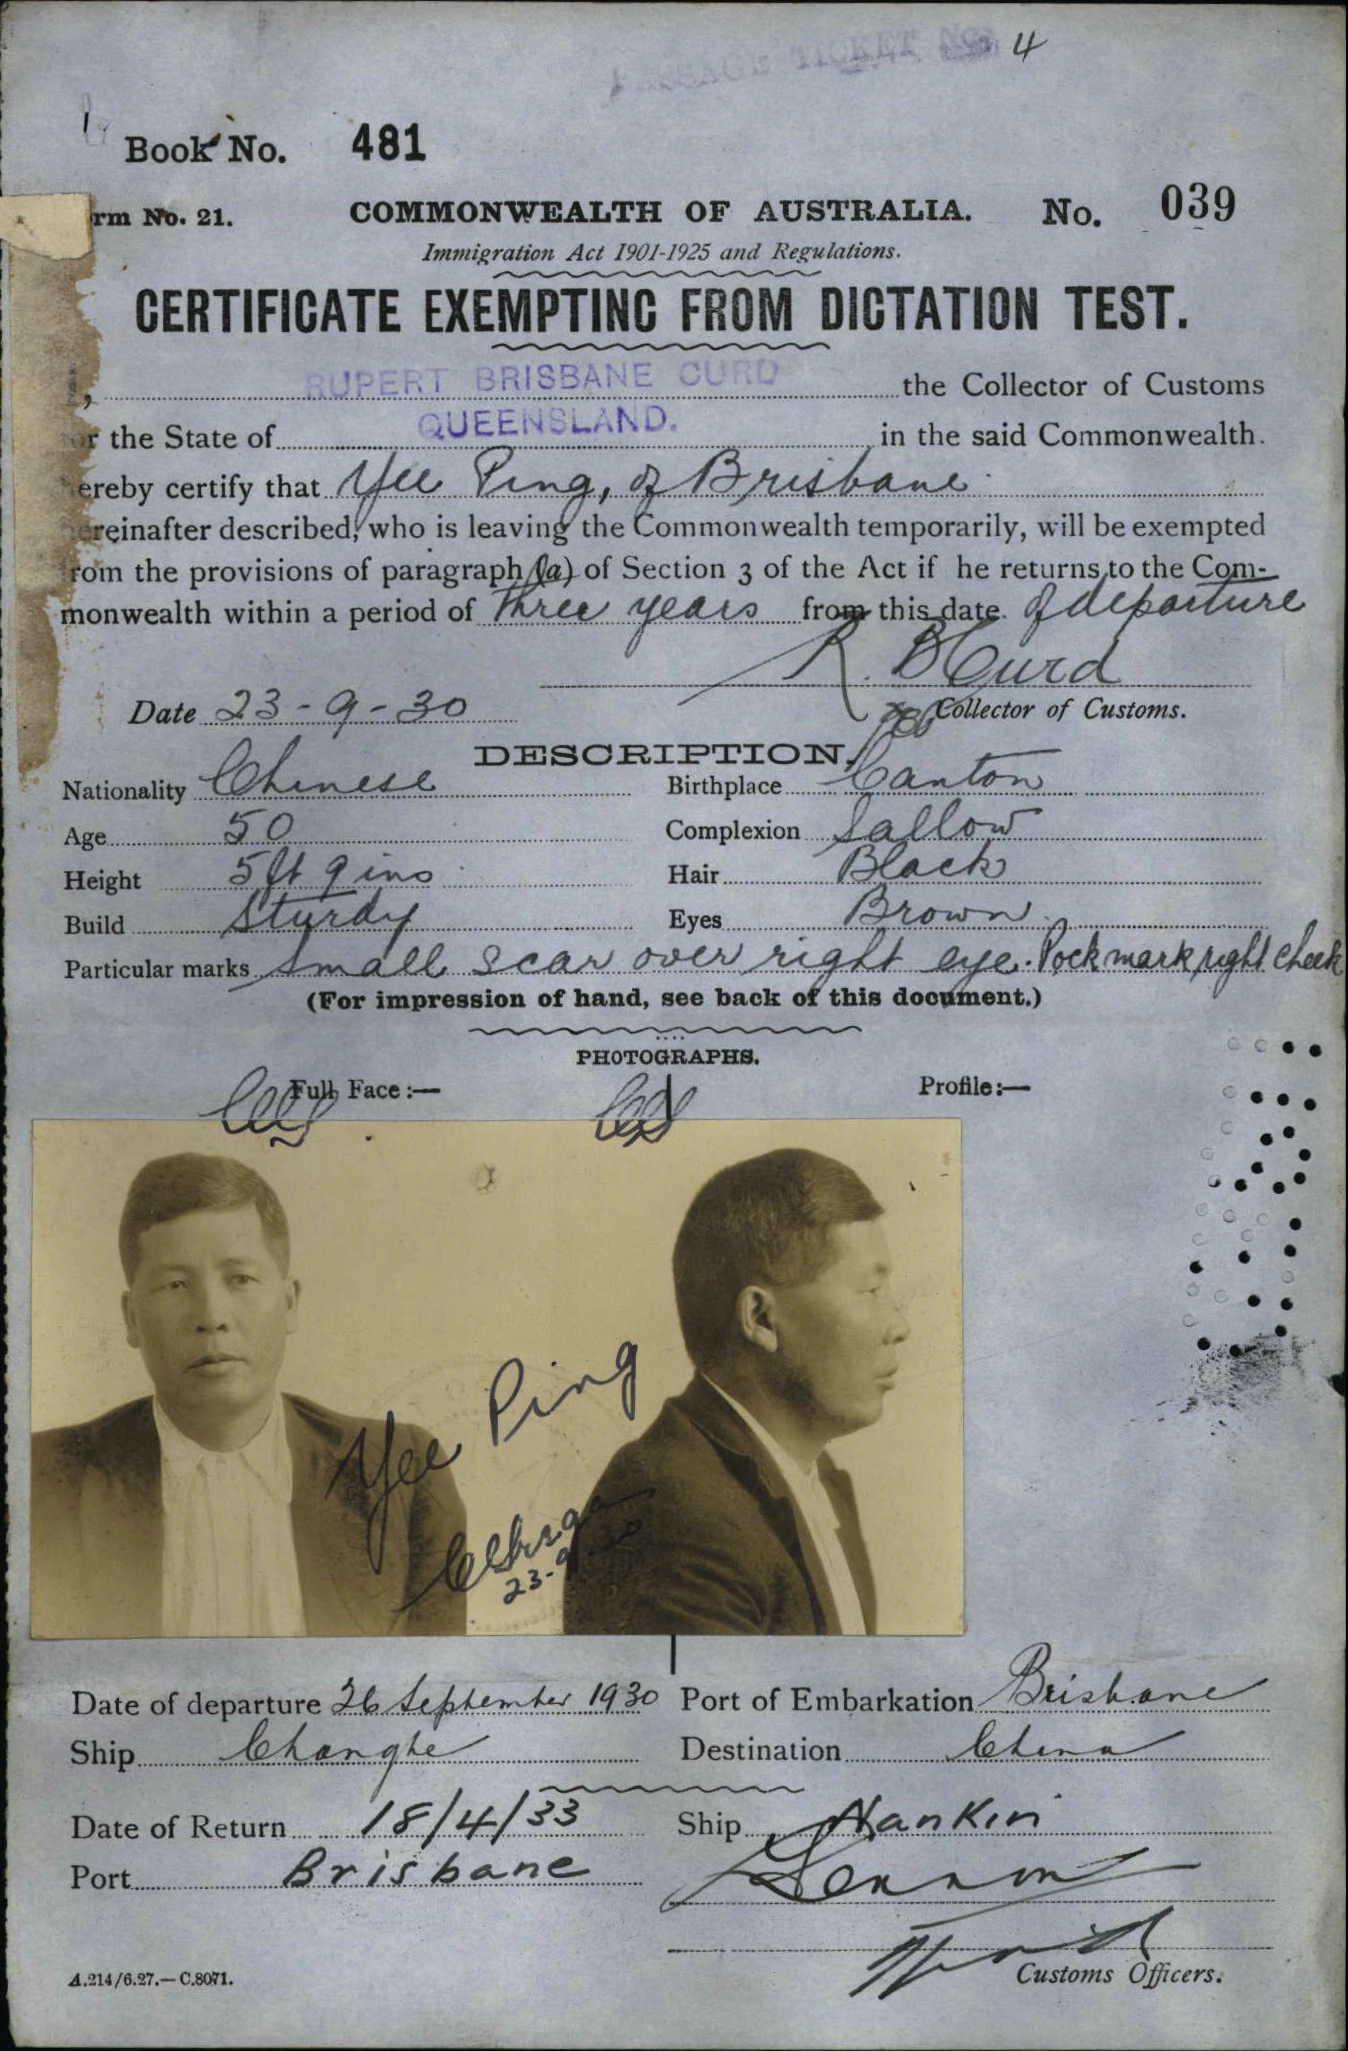 PASSAGE TICKET No. 4
Book No. 481
rm No. 21. COMMONWEALTH OF AUSTRALIA. No. 039
Immigration Act 1901-1925 and Regulations.
CERTIFICATE EXEMPTING FROM DICTATION TEST.
, RUPERT BRISBANE CURD the Collector of Customs
for the State of QUEENSLAND. in the said Commonwealth.
hereby certify that Yee Ping, of Brisbane
hereinafter described, who is leaving the Commonwealth temporarily, will be exempted
from the provisions of paragraph (a) of Section 3 of the Act if he returns to the Com-
monwealth within a period of three years from this date of departure
R. B Curd
Date 23-9-30 Collector of Customs.
DESCRIPTION.
Nationality Chinese Birthplace Canton
Age 50 Complexion Sallow
Height 5 ft 9 ins Hair Black
Build Sturdy Eyes Brown
Particular marks Small scar over right eye. Pock mark right cheek
(For impression of hand, see back of this document.)
PHOTOGRAPHS.
Full Face:— Profile:—
Yee Ping
23-9-30
Date of departure 26 September 1930 Port of Embarkation Brisbane
Ship Changte Destination China
Date of Return 18/4/33 Ship Nankin
Port Brisbane
Customs Officers.
A.214/6.27.—C.8071.